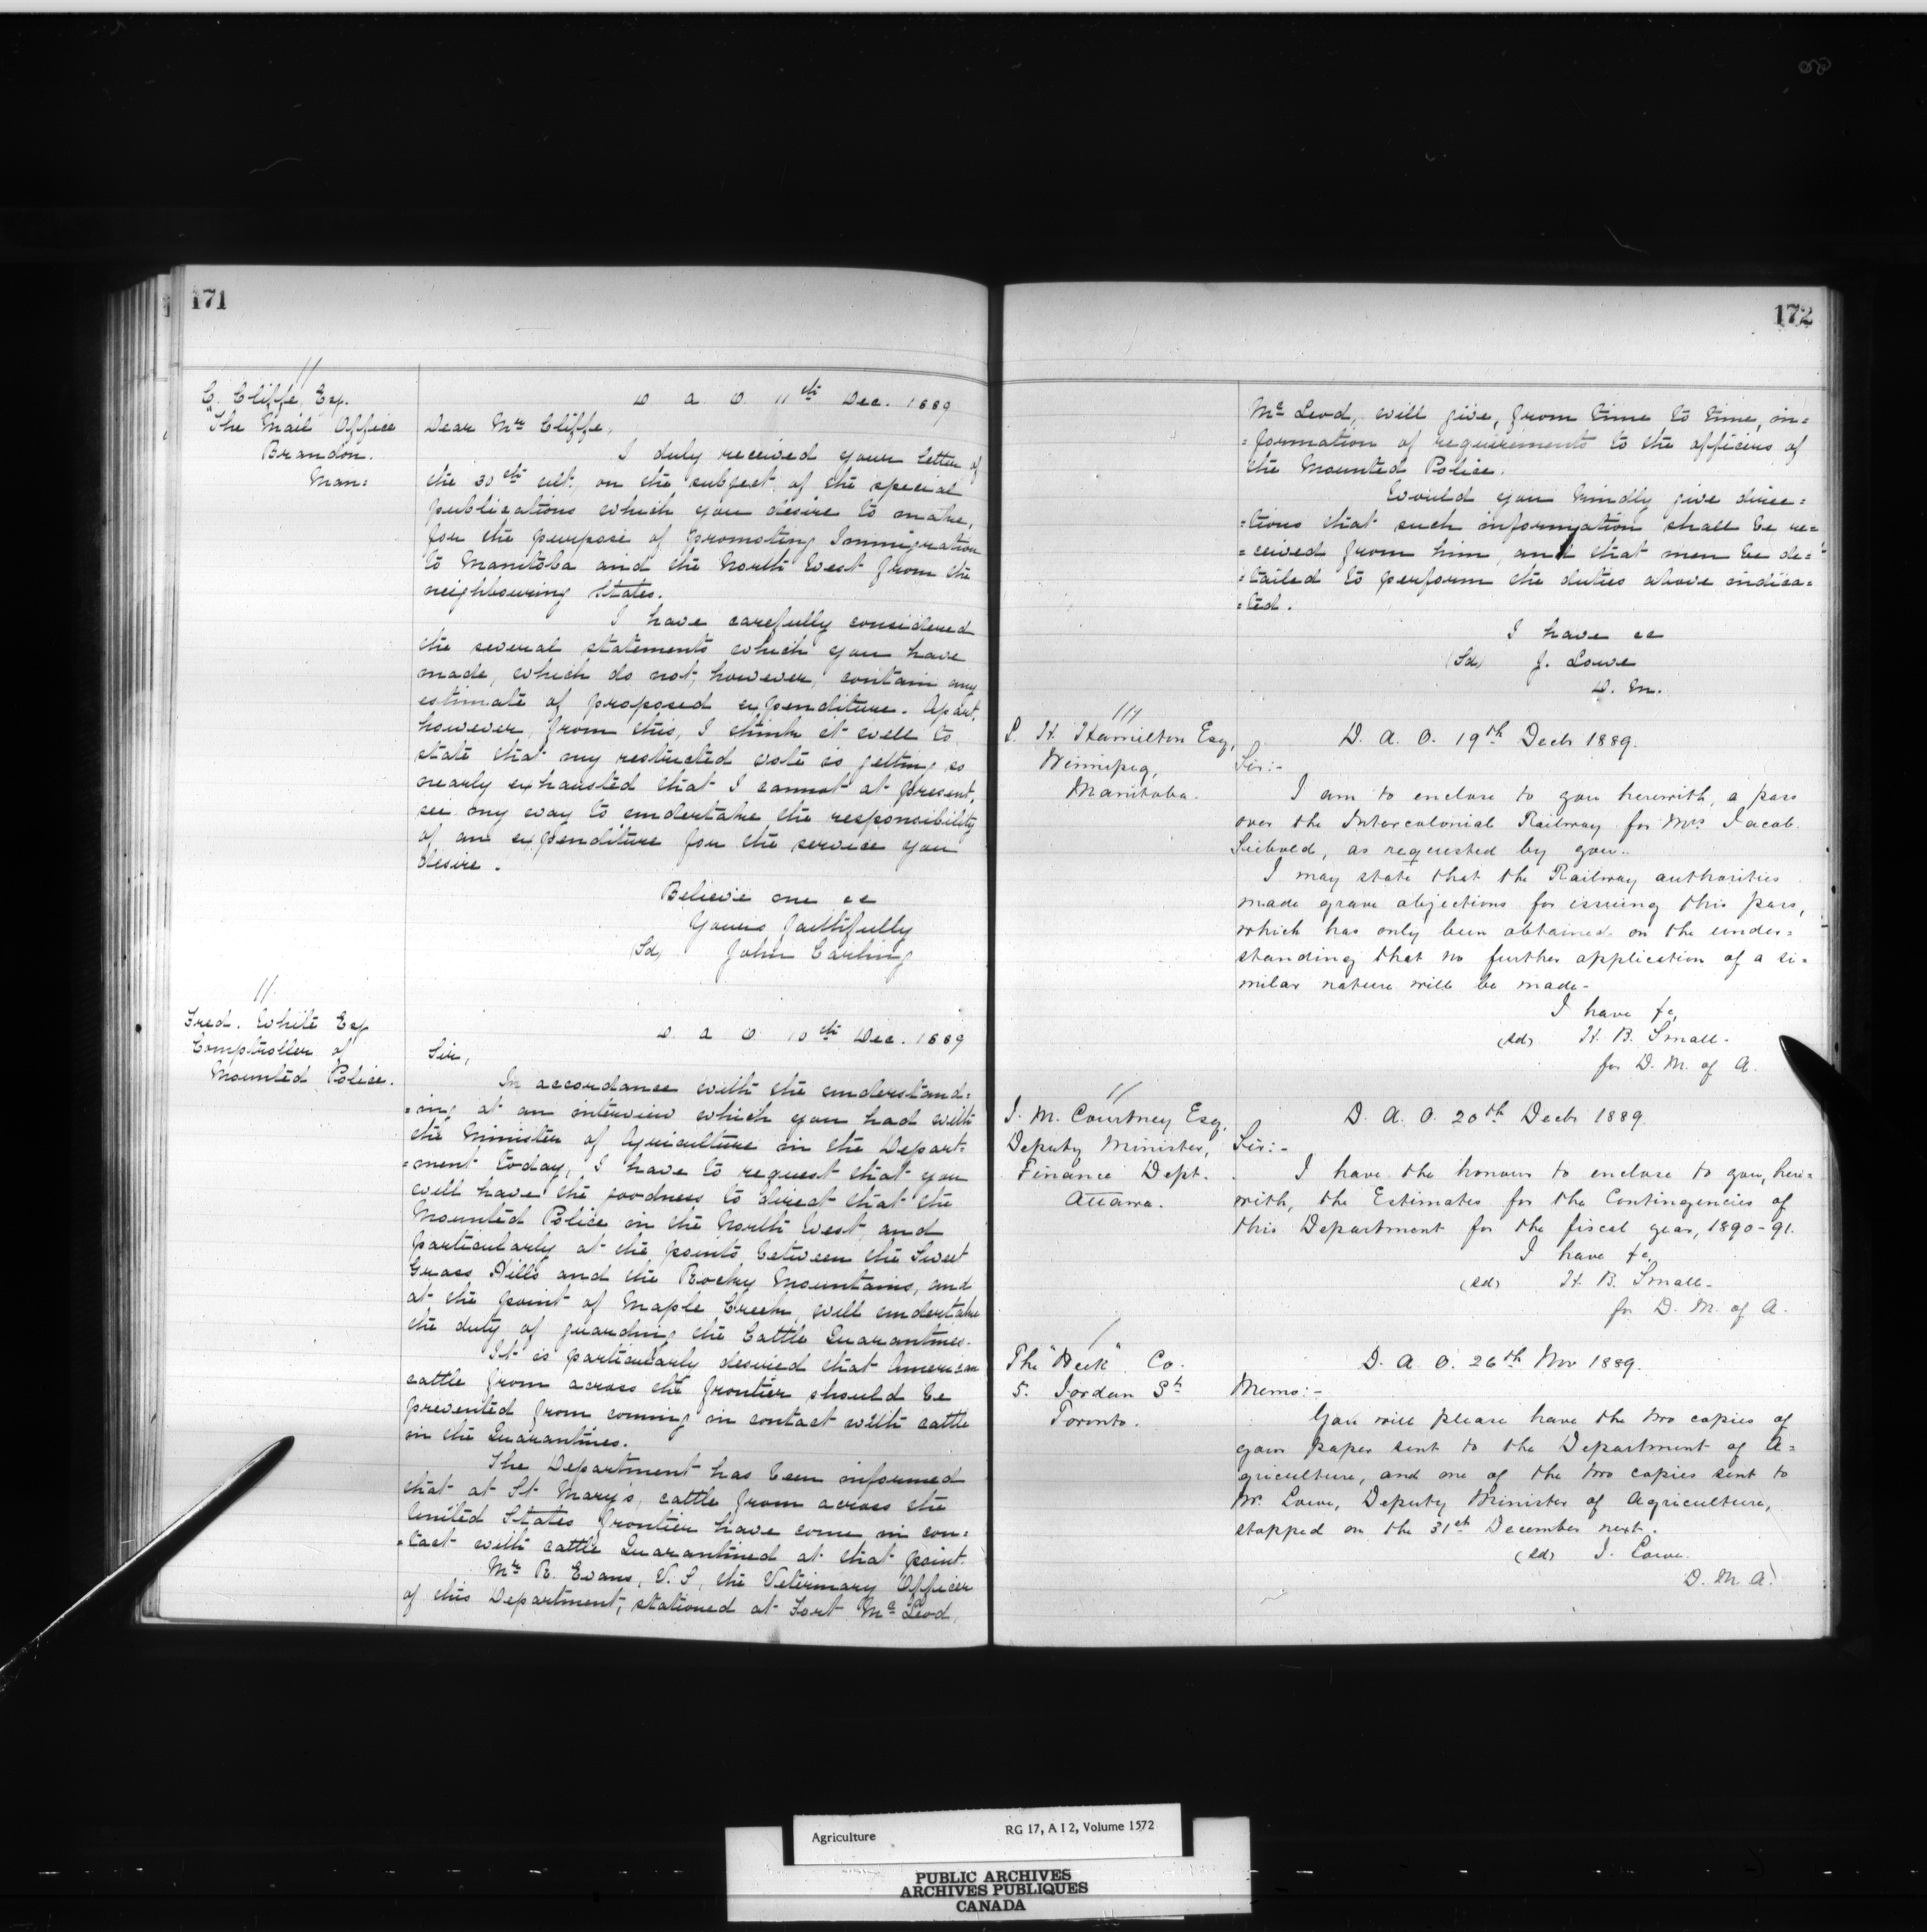 171
//
C. Cliffe, Esq.
"The Mail Office
Brandon.
Man:
D. A. O. 11th Dec. 1889
Dear Mr Cliffe,
I duly received your letter of
the 30th ult. on the subject of the special
publications which you desire to make,
for the purpose of promoting Immigration
to Manitoba and the North West from the
neighbouring States.
I have carefully considered
the several statements which you have
made, which do not, however, contain any
estimate of proposed expenditure. Apart,
however, from this, I think it well to
state that my restricted vote is getting so
nearly exhausted that I cannot at present,
see my way to undertake the responsibility
of an expenditure for the service you
desire.
Believe me &c
Yours faithfully
(Sd) John Carling
//
Fred. White Esq
Comptroller of
Mounted Police.
D. A. O. 10th Dec. 1889
Sir,
In accordance with the understand=
=ing at an interview which you had with
the Minister of Agriculture in the Depart=
=ment today, I have to request that you
will have the goodness to direct that the
Mounted Police in the North West, and
particularly at the points between the Sweet
Grass Hills and the Rocky Mountains, and
at the point of Maple Creek, will undertake
the duty of guarding the Cattle Quarantines.
It is particularly desired that American
cattle from across the frontier should be
prevented from coming in contact with cattle
in the Quarantines.
The Department has been informed
that at St Mary's, cattle from across the
United States frontier have come in con=
=tact with cattle Quarantined at that point.
Mr R. Evans, V. S, the Veterinary Officer
of this Department, stationed at Fort McLeod,
172
McLeod, will give, from time to time, in=
=formation of requirements to the officers of
the Mounted Police.
Would you kindly give direc=
=tions that such information shall be re=
=ceived from him, and that men be de=
=tailed to perform the duties above indica=
=ted.
I have &c
(Sd) J. Lowe
D. M.
///
L. H. Hamilton Esq,
Winnipeg,
Manitoba.
D. A. O. 19th Decbr 1889.
Sir:-
I am to enclose to you herewith, a pass
over the Intercolonial Railway for Mrs Jacob
as requested by you.
I may state that the Railway authorities
made grave objections for issuing this pass,
which has only been obtained on the under=
standing that no further application of a si=
milar nature will be made-
I have &c,
(sd) H. B. Small-
for D. M. of A.
//
J. M. Courtney Esq,
Deputy Minister,
Finance Dept.
Ottawa.
D. A. O. 20th Decbr 1889.
Sir:-
I have the honour to enclose to you, here=
with, the Estimates for the Contingencies of
this Department for the fiscal year, 1890-91.
I have &c,
(sd) H. B. Small-
for D. M. of A.
/
The "Week" Co.
5. Jordan St
Toronto.
D. A. O. 26th Nov 1889.
Memo:-
You will please have the two copies of
your paper sent to the Department of A=
griculture, and one of the two copies sent to
Mr. Lowe, Deputy Minister of Agriculture,
stopped on the 31st December next.
(sd) J. Lowe.
D. M. A.
Agriculture RG 17, A I 2, Volume 1572
PUBLIC ARCHIVES
ARCHIVES PUBLIQUES
CANADA